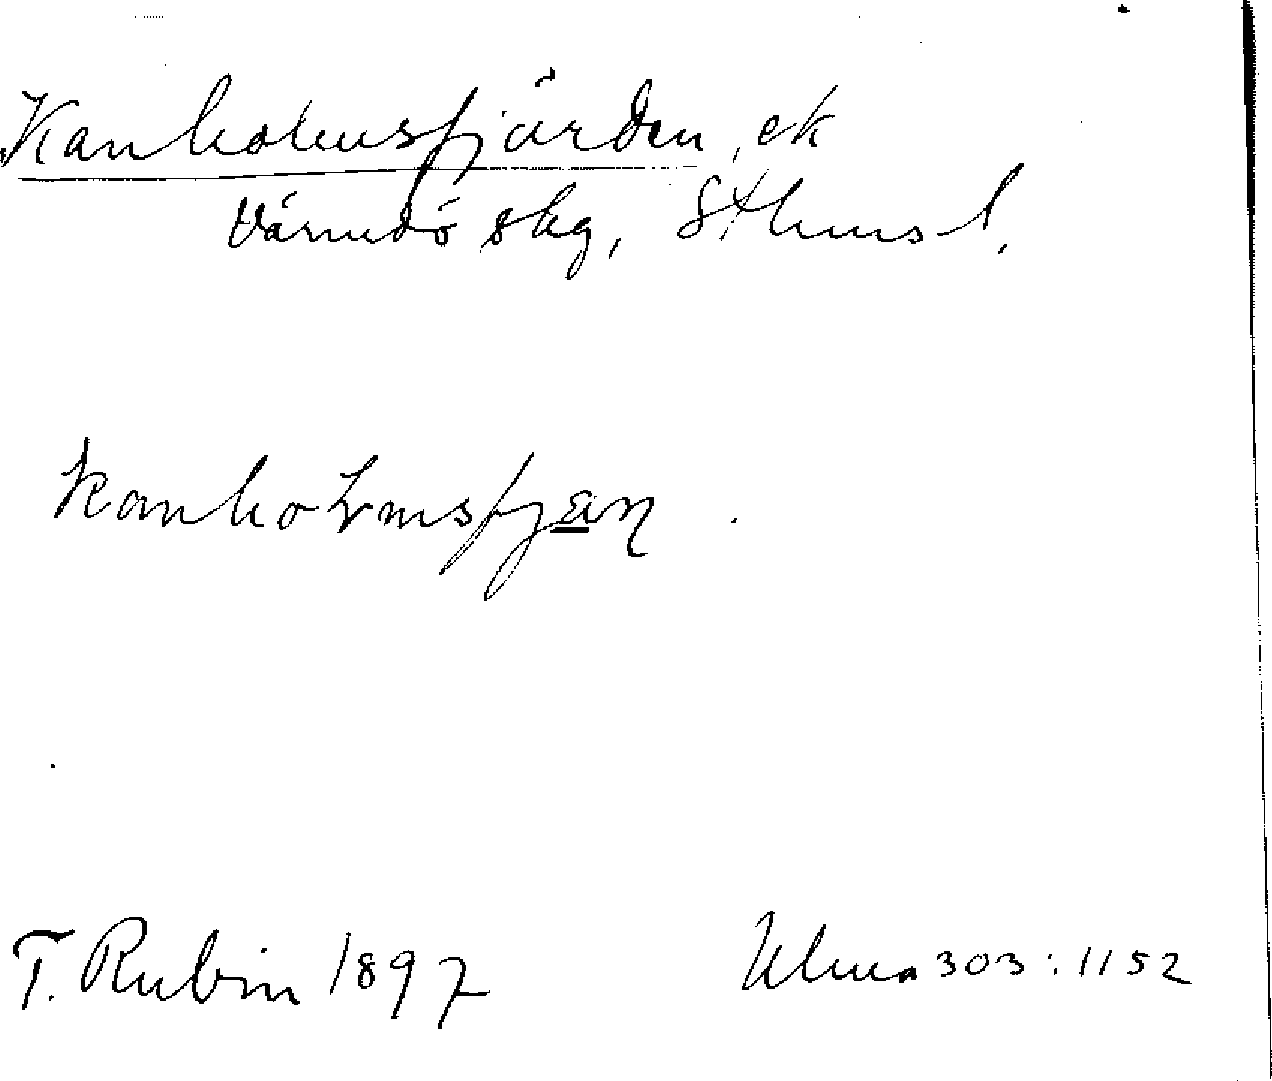 Kanholmsfjärden, ek
Värmdö skg, Sthms l.
kanholmsfjæ̱ɳ.
T. Rubin 1897
Ulma 303:1152